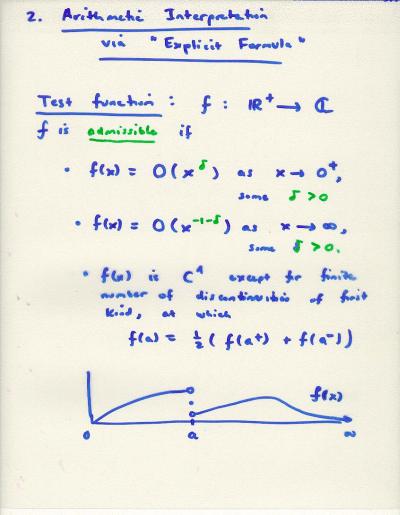 2. Arithmetic Interpretation
via "Explicit Formula"
Test function : f : ℝ⁺ → ℂ
f is admissible if
• f(x) = O(x^δ) as x → 0⁺,
some δ > 0
• f(x) = O(x^{-1-δ}) as x → ∞,
some δ > 0.
• f(x) is C¹ except for finite
number of discontinuities of first
kind, at which
f(a) = ½ ( f(a⁺) + f(a⁻) )
f(x)
0 a ∞